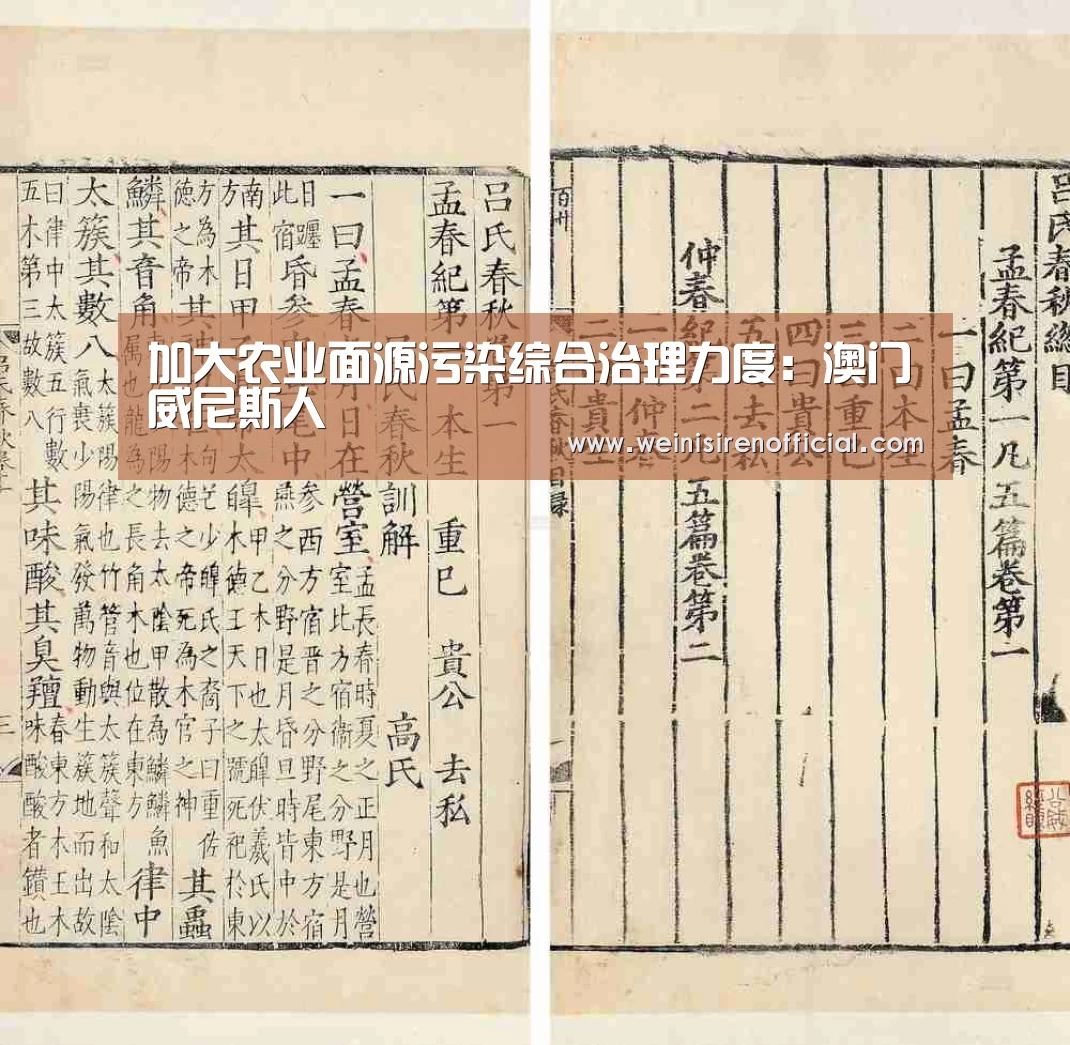 加大农业面源污染综合治理力度：澳门
威尼斯人
www.weinisirenofficial.com
呂氏春秋總目
孟春紀第一凡五篇卷第一
一曰孟春
二曰本生
三曰重己
四曰貴公
五曰去私
仲春紀第二凡五篇卷第二
一曰仲春
二曰貴生
呂氏春秋卷第一
孟春紀第一 本生 重巳 貴公 去私
呂氏春秋訓解 高氏
一曰孟春之月日在營室 孟長春時夏之正月也營室比方宿衞之分野是月
日躔此宿 昏參中旦尾中 參西方宿晉之分野尾東方宿燕之分野是月昏旦時皆中於
南方 其日甲乙其帝太皥 甲乙木日也太皥伏羲氏以木德王天下之號死祀於東
方為木德之帝 其神句芒 句芒少皥氏之裔子曰重佐木德之帝死為木官之神 其蟲
鱗其音角 東方少陽物去太陰甲散為鱗鱗魚屬也龍為之長角木也位在東方 律中
太簇其數八 太簇陽律也竹管音與太簇聲和太陰氣衰少陽氣發萬物動生簇地而出故
曰律中太簇五行數五木第三故數八 其味酸其臭羶 春東方木王木味酸酸者鑽也